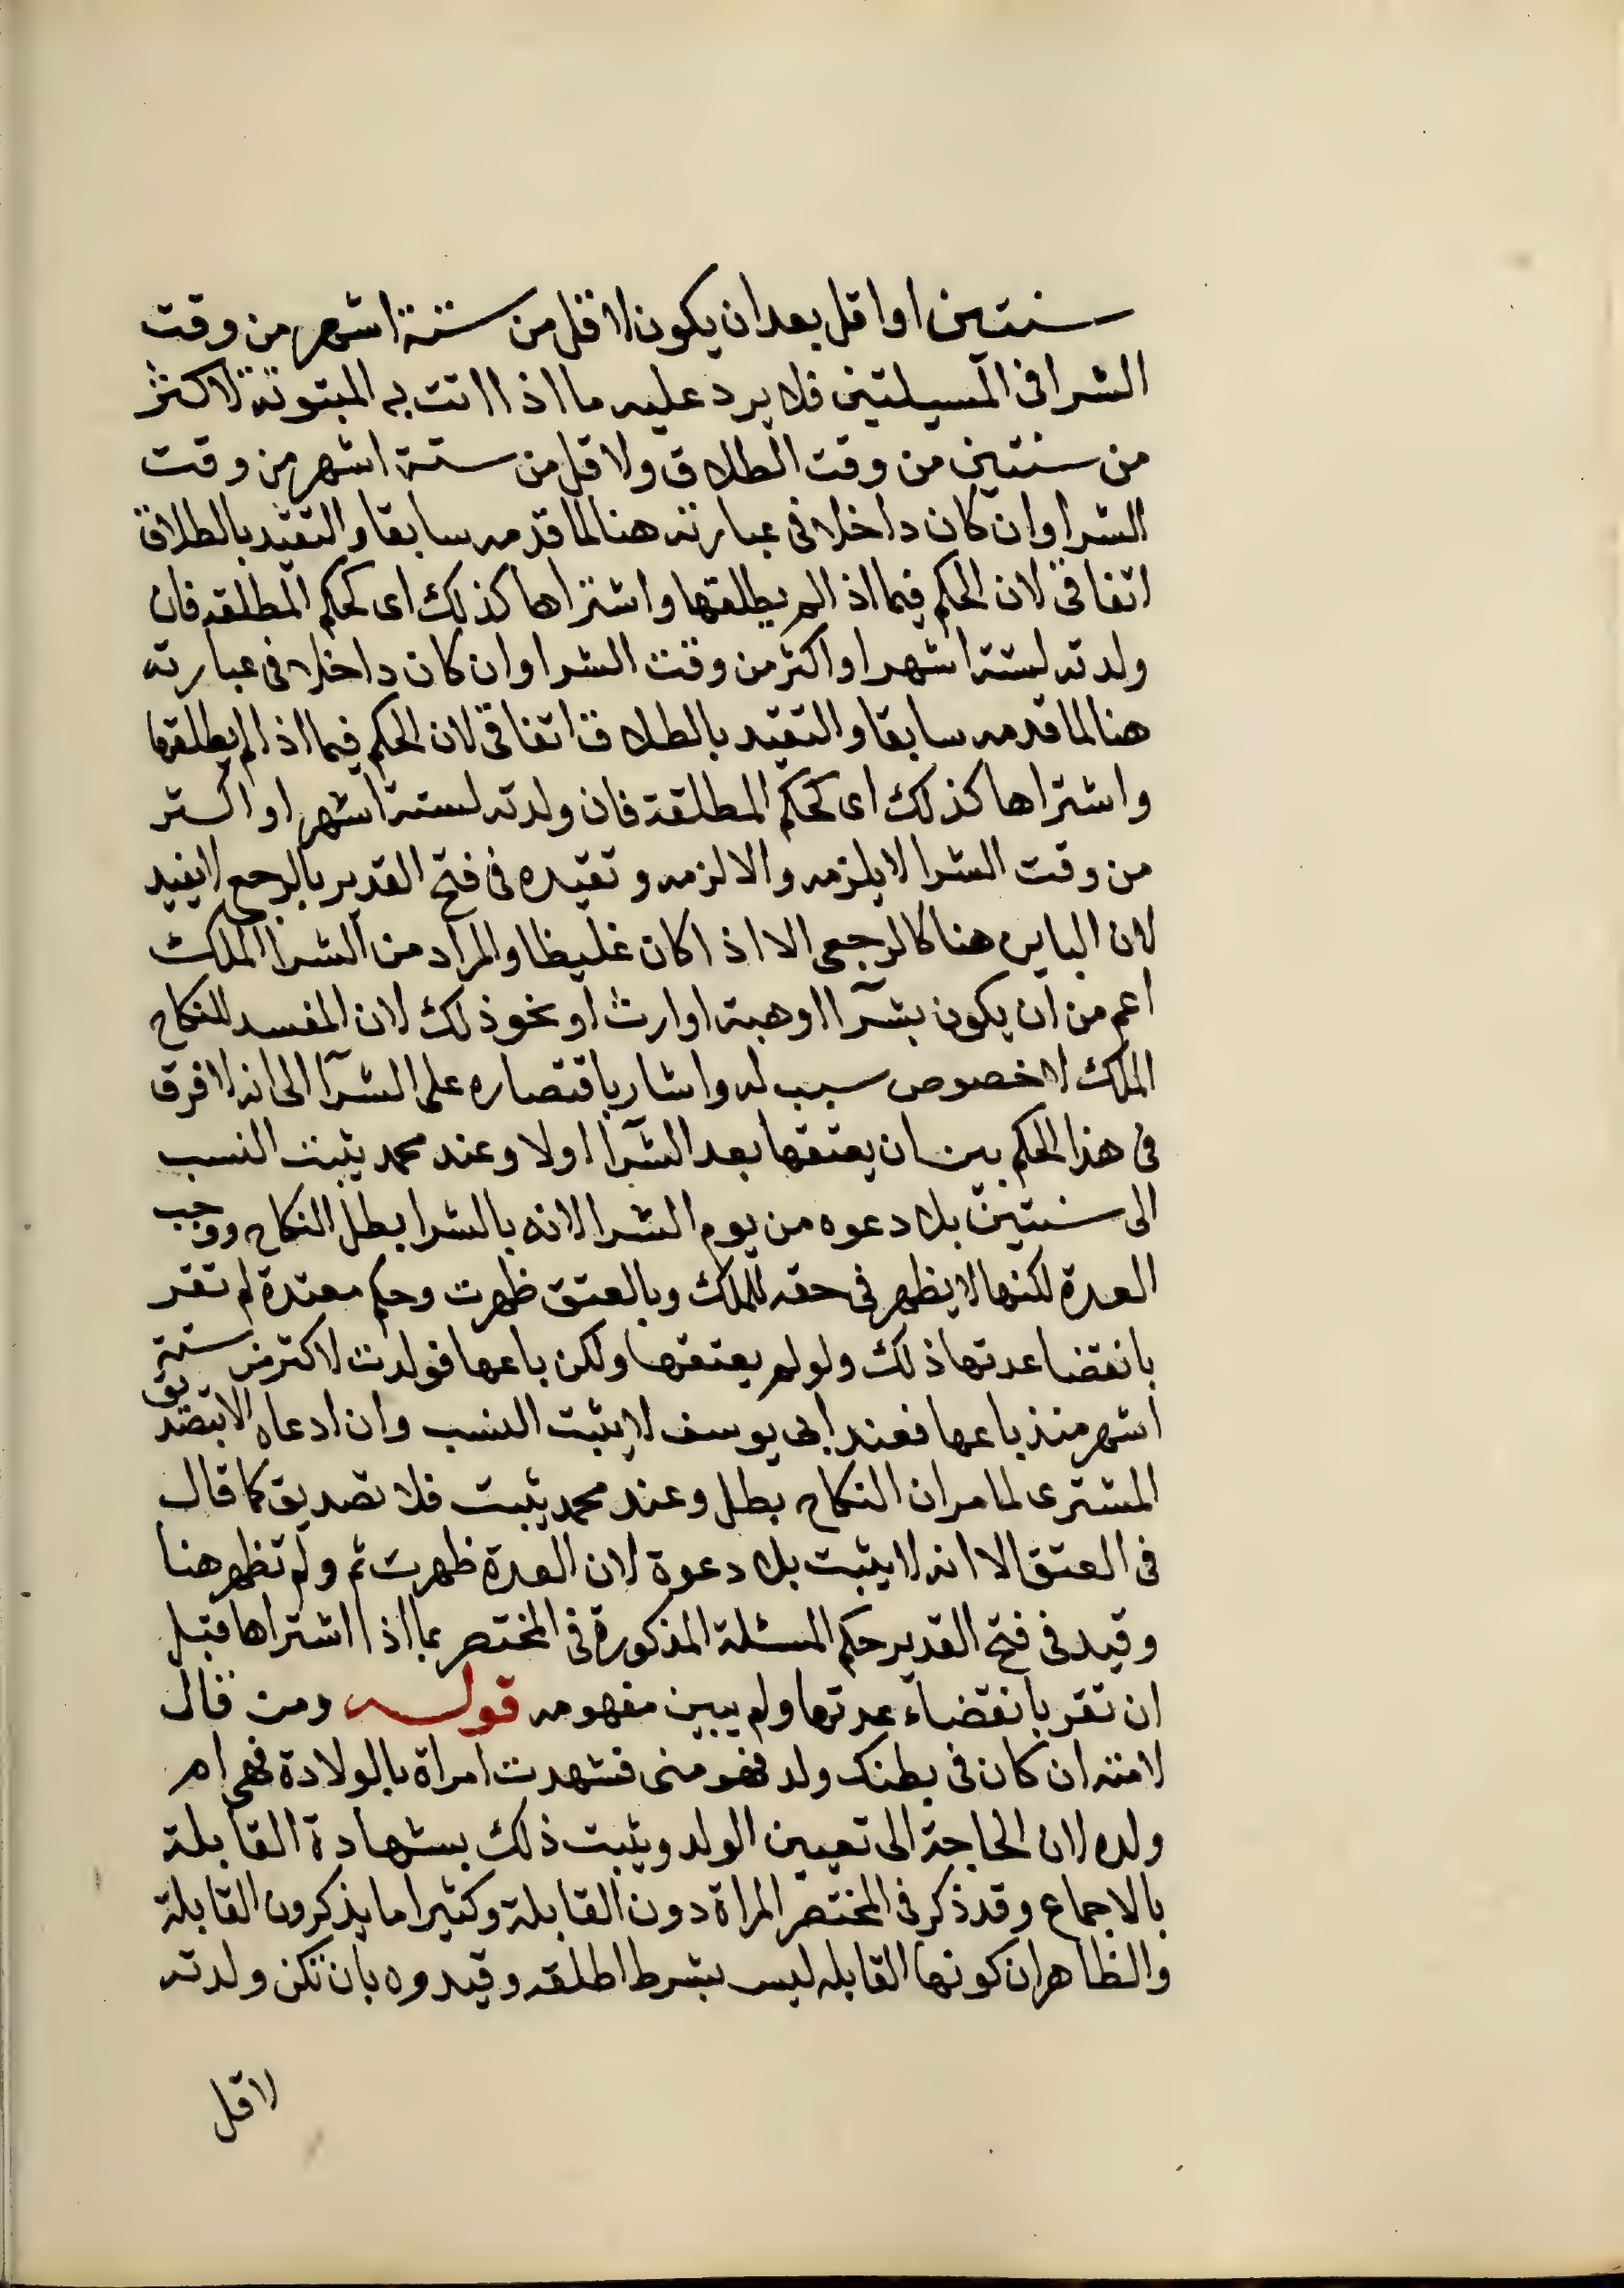 سنتين او اقل بعد ان يكون لاقل من ستة اشهر من وقت
الشرا فى المسيلتين فلا يرد عليه ما اذا اتت به المبتوتة لاكثر
من سنتين من وقت الطلاق ولاقل من ستة اشهر من وقت
الشرا وان كان داخلا فى عبارته هنا لما قدمه سابقا والتقيد بالطلاق
اتفاقى لان الحكم فيما اذا لم يطلقها واشتراها كذلك اى كحكم المطلقه فان
ولدته لستة اشهر او اكثر من وقت الشرا وان كان داخلا فى عبارته
هنا لما قدمه سابقا والتقيد بالطلاق اتفاقى لان الحكم فيما اذا لم يطلقها
واشتراها كذلك اى كحكم المطلقة فان ولدته لستة اشهر او اكثر
من وقت الشرا لا يلزمه والا لزمه وتقيده فى فتح القدير بالرجع لا يفيد
لان الباين هنا كالرجعى الا اذا كان غليظا والمراد من الشرا الملك
اعم من ان يكون بشرآ او هبة او ارث او نحو ذلك لان المفسد للنكاح
الملك لا خصوص سبب له واشار باقتصاره على الشرآ الى انه لا فرق
فى هذا الحكم بين ان يعتقها بعد الشرآ اولا وعند محمد يثبت النسب
الى سنتين بلا دعوه من يوم الشرا لانه بالشرا بطل النكاح ووجب
العدة لكنها لا يظهر فى حقه للملك وبالعتق ظهرت وحكم معتدة لم تقر
بانقضا عدتها ذلك ولو لم يعتقها ولكن باعها فولدت لاكثر من ستة
اشهر منذ باعها فعند ابى يوسف لا يثبت النسب وان ادعاه الا بتصديق
المشترى لما مر ان النكاح بطل وعند محمد يثبت فلا تصديق كما قال
فى العتق الا انه لا يثبت بلا دعوة لان العدة ظهرت ثم ولم تظهر هنا
وقيد فى فتح القدير حكم المسئلة المذكورة فى المختصر بما اذا اشتراها قبل
ان تقر بانقضاء عدتها ولم يبين مفهومه قوله ومن قال
لامته ان كان فى بطنك ولد فهو منى فشهدت امراة بالولادة فهى ام
ولده لان الحاجة الى تعيين الولد ويثبت ذلك بشهادة القابلة
بالاجماع وقد ذكر فى المختصر المراة دون القابلة وكثيرا ما يذكرون القابلة
والظاهر ان كونها القابله ليس بشرط اطلقه وقيدوه بان تكن ولدته
لاقل